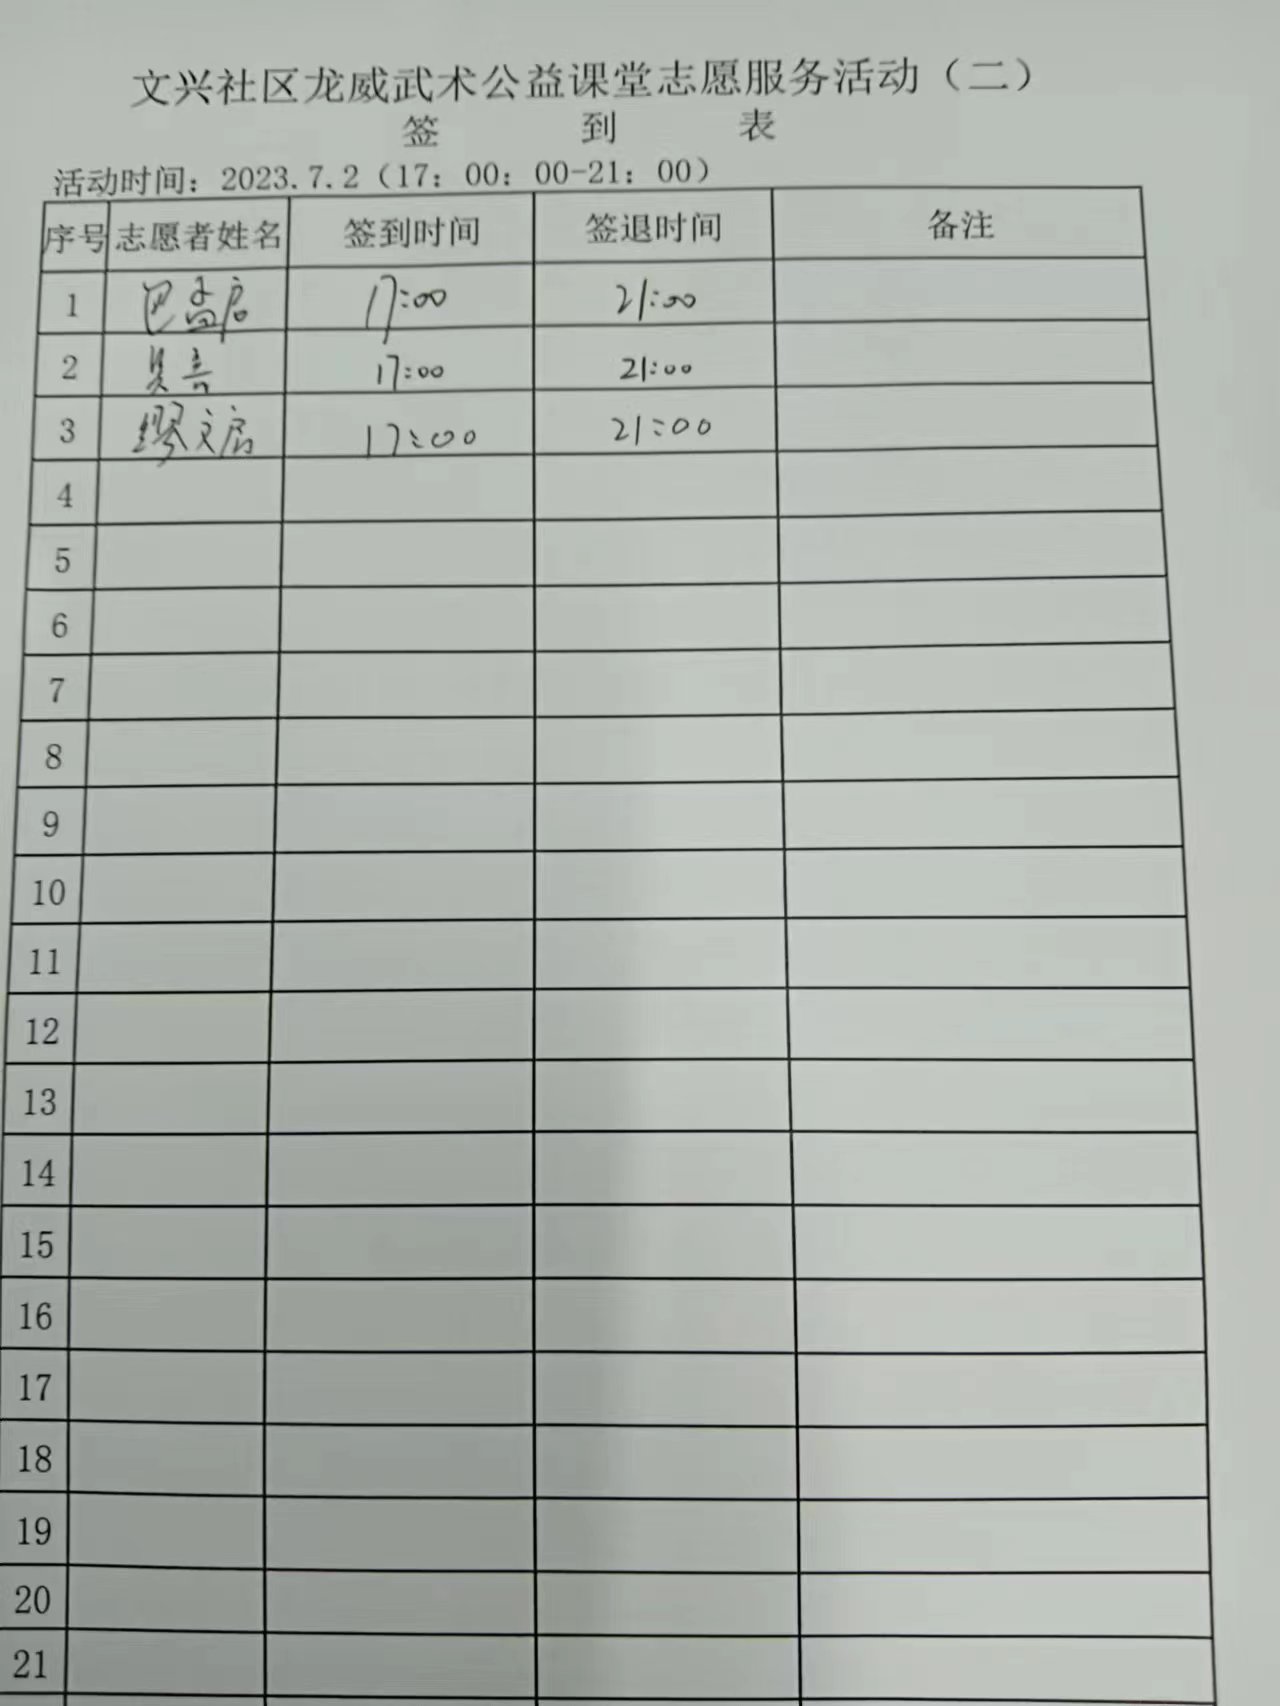 文兴社区龙威武术公益课堂志愿服务活动（二）
签 到 表
活动时间：2023.7.2（17：00：00-21：00）
序号 志愿者姓名 签到时间 签退时间 备注
1 17:00 21:00
2 17:00 21:00
3 缪文启 17:00 21:00
4
5
6
7
8
9
10
11
12
13
14
15
16
17
18
19
20
21